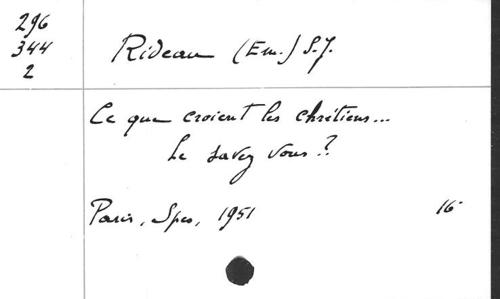 296
344
2
Rideau (Em.) S.J.
Ce que croient les chrétiens...
Le savez vous ?
Paris, Spes, 1951 16°